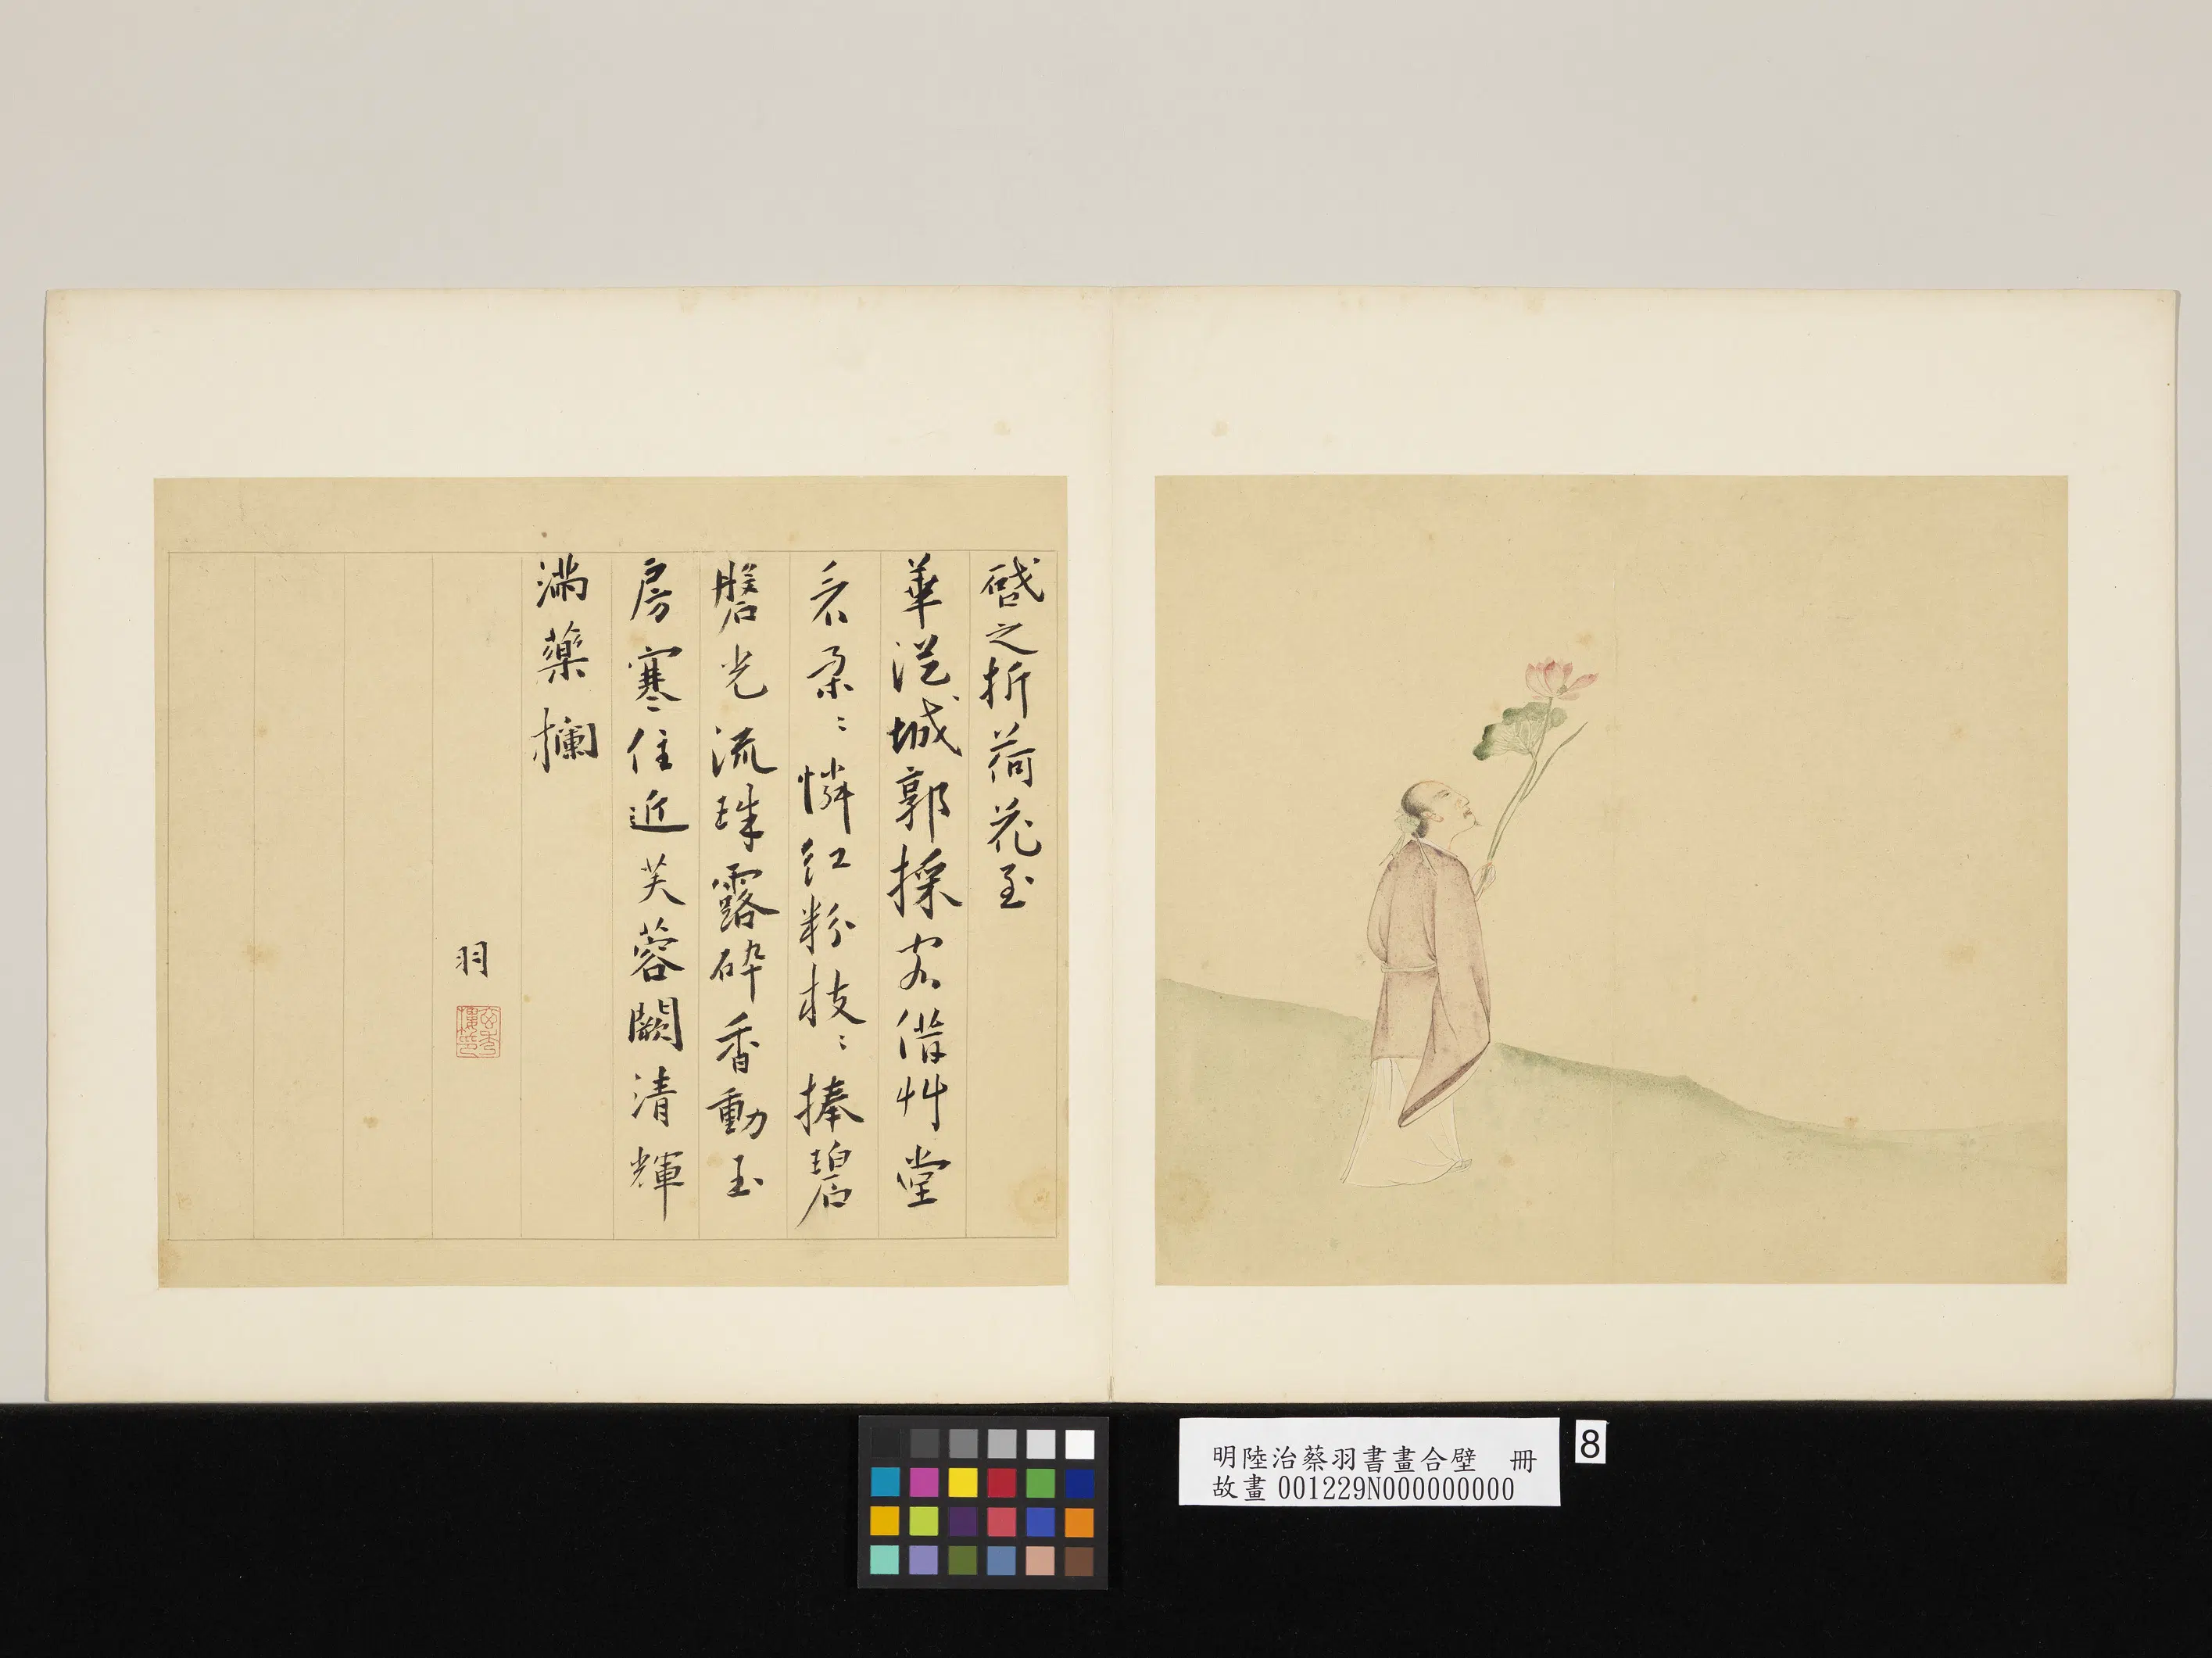 啓之折荷花至
華從城郭採客借艸堂
看朵〻憐紅粉枝〻捧碧
磐光流珠露碎香動玉
房寒住近芙蓉闕清輝
滿藥欄
羽
明陸治蔡羽書畫合璧 冊
故畫 001229N000000000
8